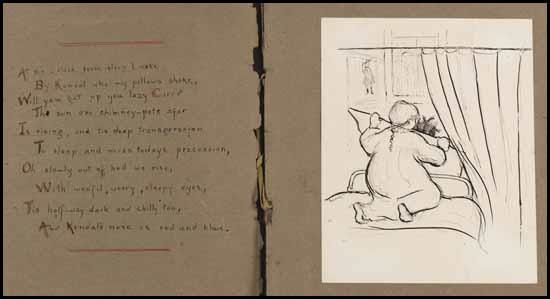 At o'clock I wake
By Kendal who my pillows shake,
Will you get up you lazy
The sun oer chimney-pots afar
Is rising, and tis deep transgression
To sleep and miss todays procession,
Oh slowly out of bed we rise,
With woeful, weary, sleepy eyes,
Tis half-way dark and chilly too,
And Kendals nose is red and blue.